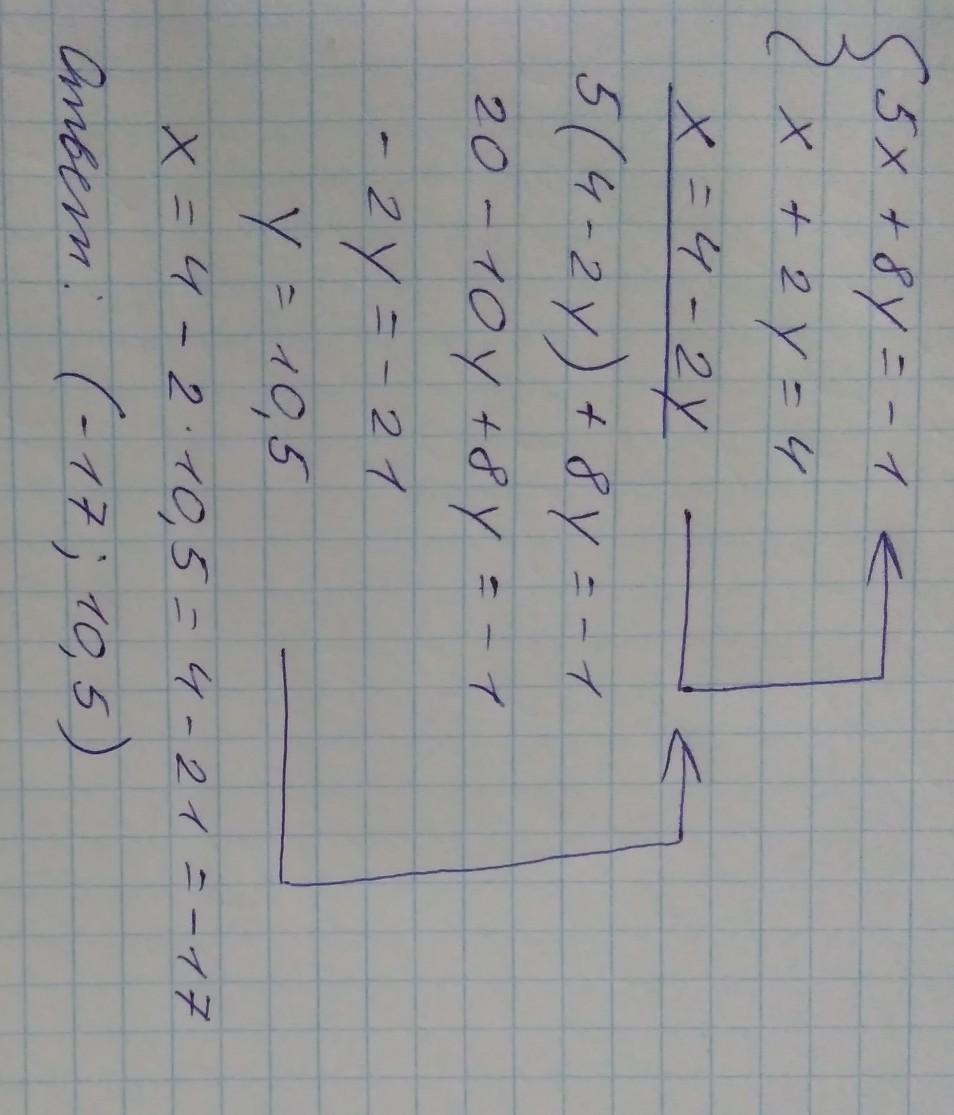 5x + 8y = -1
x + 2y = 4
x = 4 - 2y
5(4-2y) + 8y = -1
20 - 10y + 8y = -1
- 2y = -21
y = 10,5
x = 4 - 2·10,5 = 4 - 21 = -17
Ответ: (-17; 10,5)